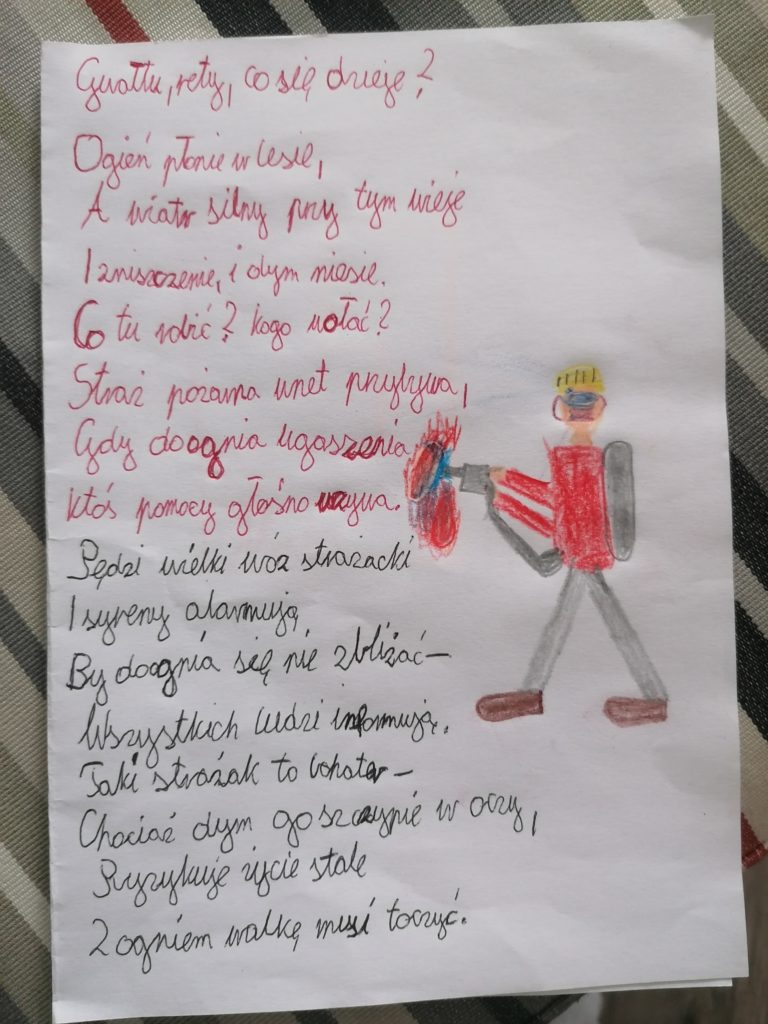 Gwałtu, rety, co się dzieje?
Ogień płonie w lesie,
A wiatr silny przy tym wieje
I zniszczenie, i dym niesie.
Co tu robić? kogo wołać?
Straż pożarna wnet przybywa,
Gdy do ognia ugaszenia
ktoś pomocy głośno wzywa.
Pędzi wielki wóz strażacki
I syreny alarmują
By do ognia się nie zbliżać-
Wszystkich ludzi informują.
Taki strażak to bohater-
Chociaż dym go szczypie w oczy,
Ryzykuje życie stale
Z ogniem walkę musi toczyć.